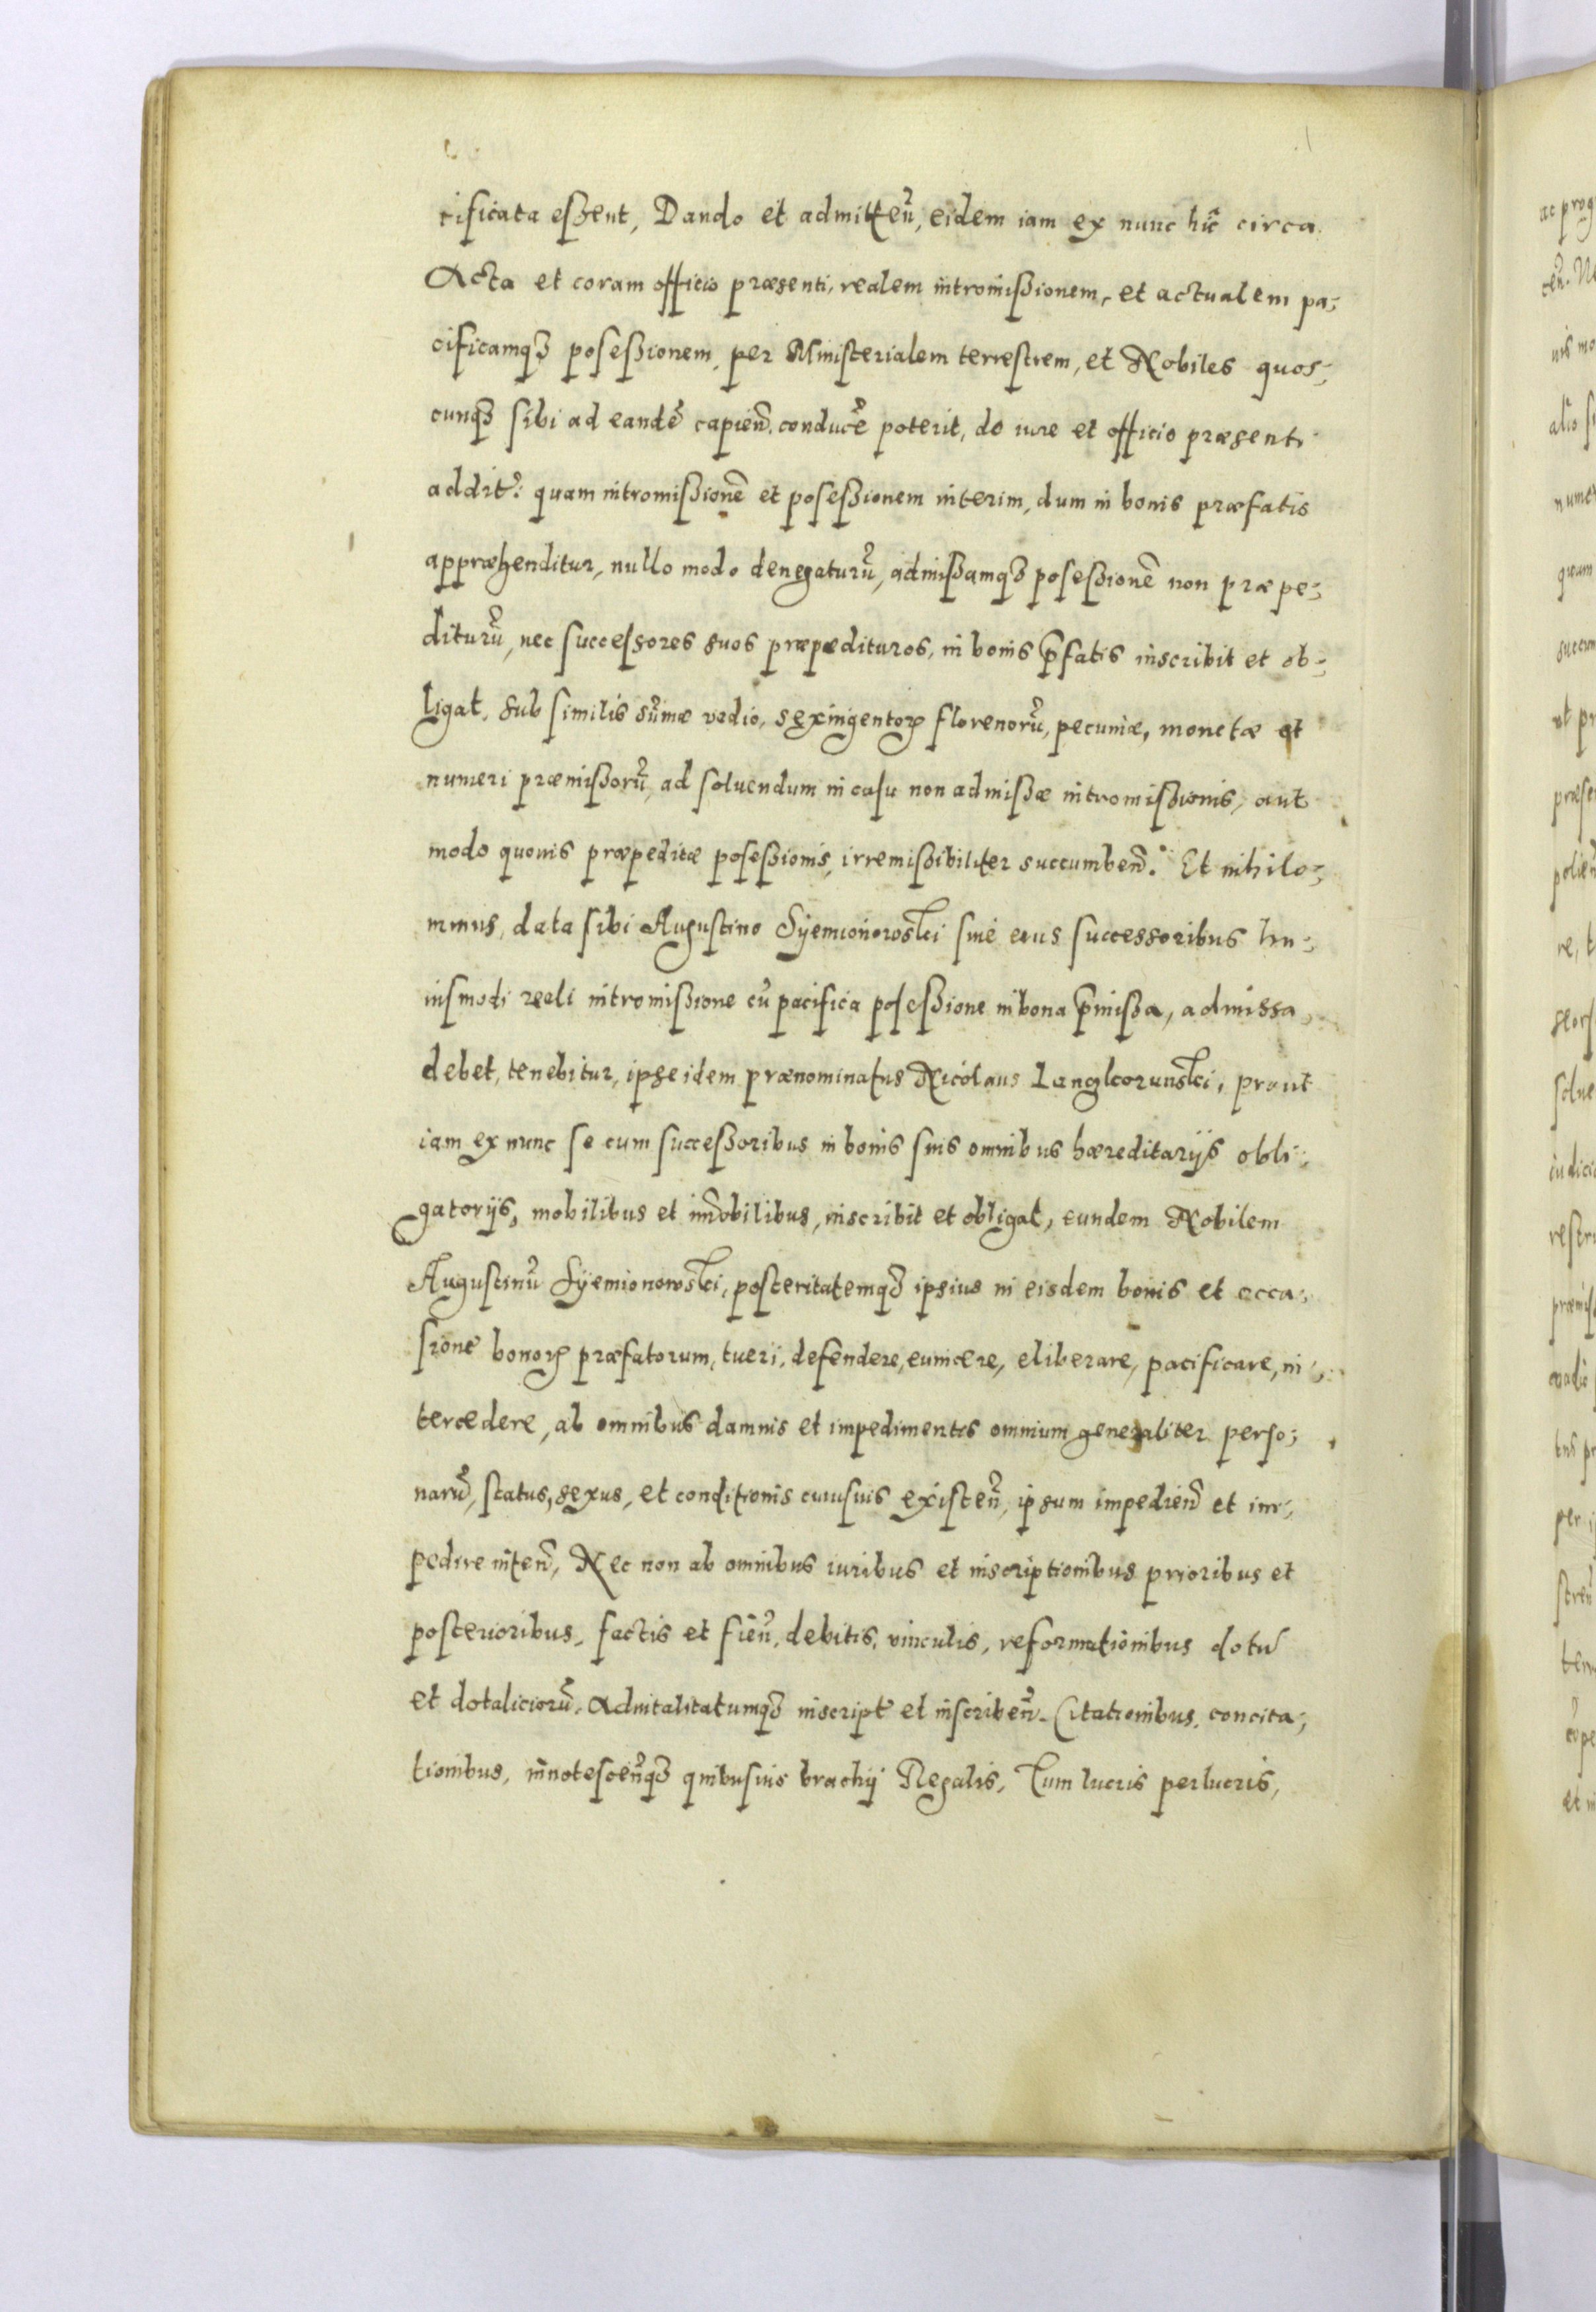 cificata eßent, Dando et admitteñ, eidem iam ex nunc hi͂c circa
Acta et coram officio præsenti, realem intromißionem, et actualem pa;
cificamqȝ poseßionem, per Ministerialem terrestrem, et Nobiles quos;
cunqȝ sibi ad eandē capieñ. conducē poterit, de iure et officio præsenti
addit: quam intromißionē et poseßionem interim, dum in bonis præfatis
appræhenditur, nullo modo denegaturū, admißamqȝ poseßionē non præpe;
diturū, nec successores suos præpedituros, in bonis p̄fatis inscribit et ob;
ligat, sub similis sūmæ vadio, sexingentoꝝ florenorū, pecuniæ, monetæ et
numeri præmißorū, ad soluendum in casu non admißæ intromißionis, aut
modo quouis præpeditæ poseßionis, irremißibiliter succumbeñ. Et nihilo;
minus, data sibi Augustino Syemionowski siue eius successoribus hu;
iusmodi reali intromißione cū pacifica poseßione in bona p̄mißa, admissa,
debet, tenebitur, ipse idem prænominatus Nicolaus Langkorunski, prout
iam ex nunc se cum succeßoribus in bonis suis omnibus hæreditarijs obli;
gatorijs, mobilibus et im̄obilibus, inscribit et obligat, eundem Nobilem
Augustinū Syemionowski, posteritatemqȝ ipsius in eisdem bonis et occa;
sione bonoꝝ præfatorum, tueri, defendere, euincere, eliberare, pacificare, in;
tercedere, ab omnibus damnis et impedimentis omnium generaliter perso;
narū, status, sexus, et conditionis cuiusuis existeñ, ipsum impedieñ et im;
pedire inteñ, Nec non ab omnibus iuribus et inscriptionibus prioribus et
posterioribus, factis et fieñ, debitis, vinculis, reformationibus dotū
et dotaliciorū, Aduitalitatumqȝ inscript et inscribeñ. Citationibus, concita;
tionibus, innotesceñqȝ quibusuis brachij Regalis, Tum lucris perlucris,